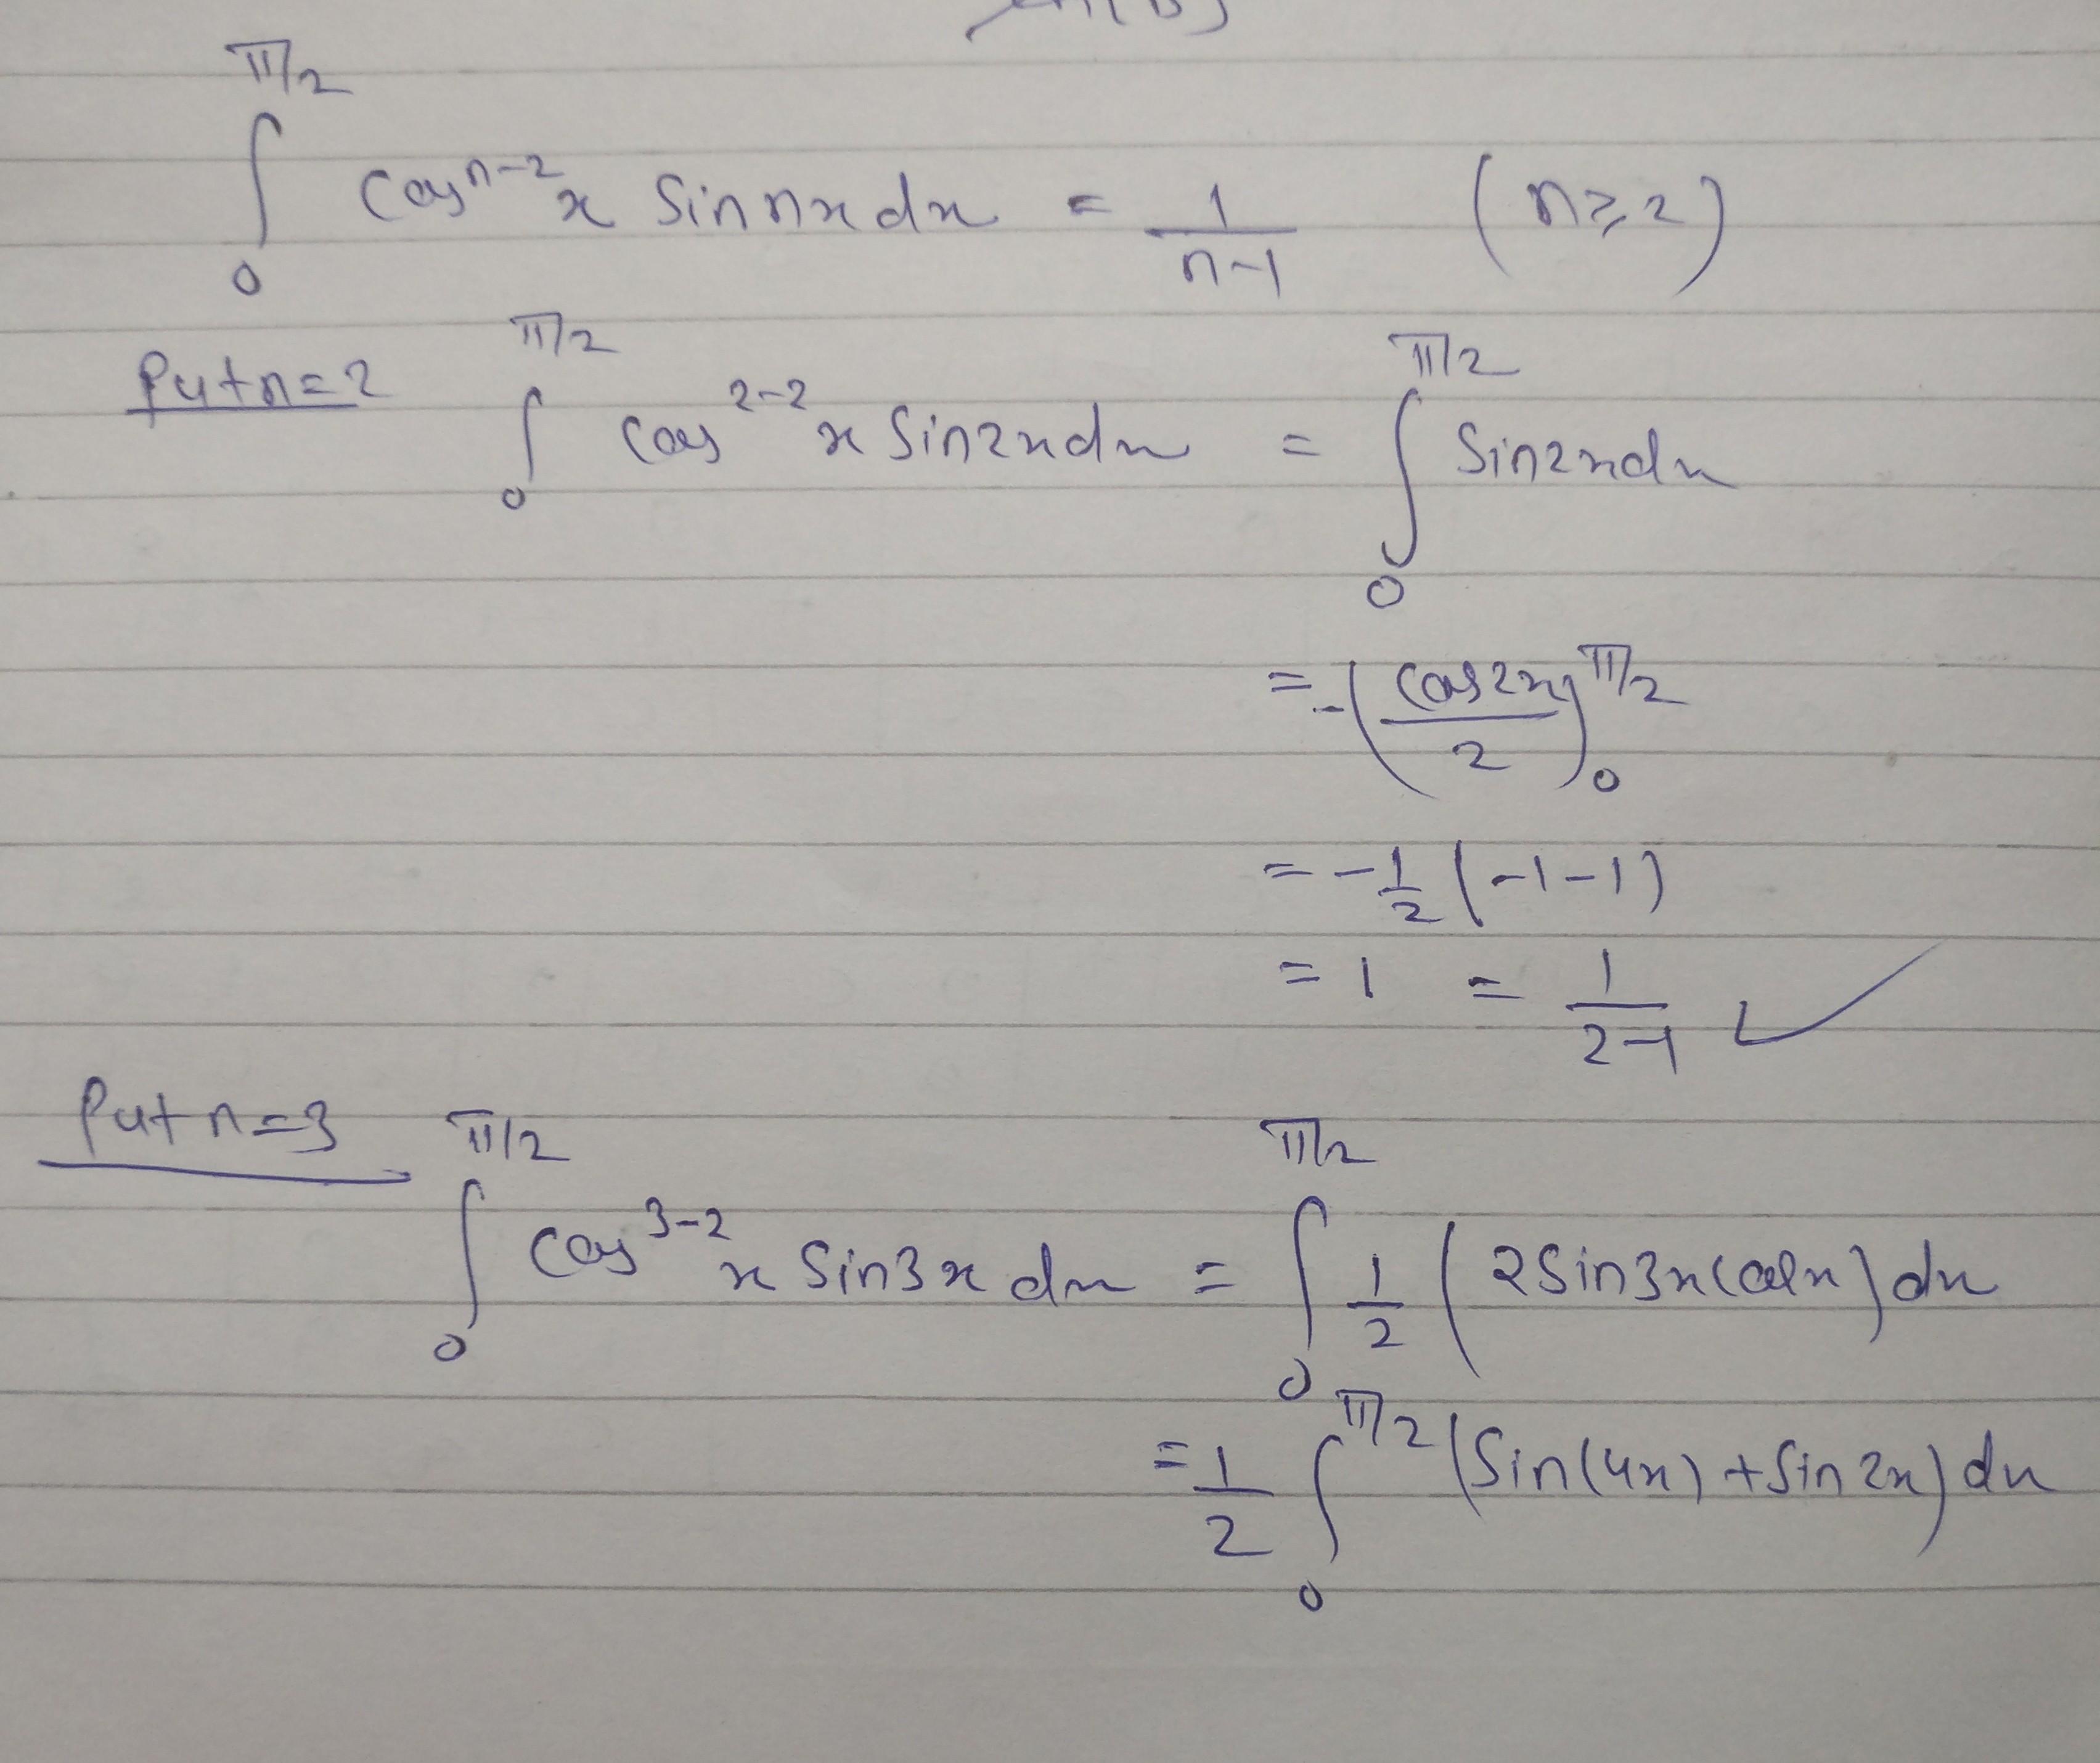 ∫₀^{π/2} cos^{n-2}x sin nx dx = 1/(n-1) (n≥2)
Put n=2 ∫₀^{π/2} cos^{2-2}x sin2x dx = ∫₀^{π/2} sin2x dx
= -(cos2x/2)₀^{π/2}
= -1/2 (-1-1)
= 1 = 1/(2-1) ✓
Put n=3 ∫₀^{π/2} cos^{3-2}x sin3x dx = ∫₀^{π/2} 1/2 (2sin3x cosx) dx
= 1/2 ∫₀^{π/2} (sin(4x) + sin2x) dx